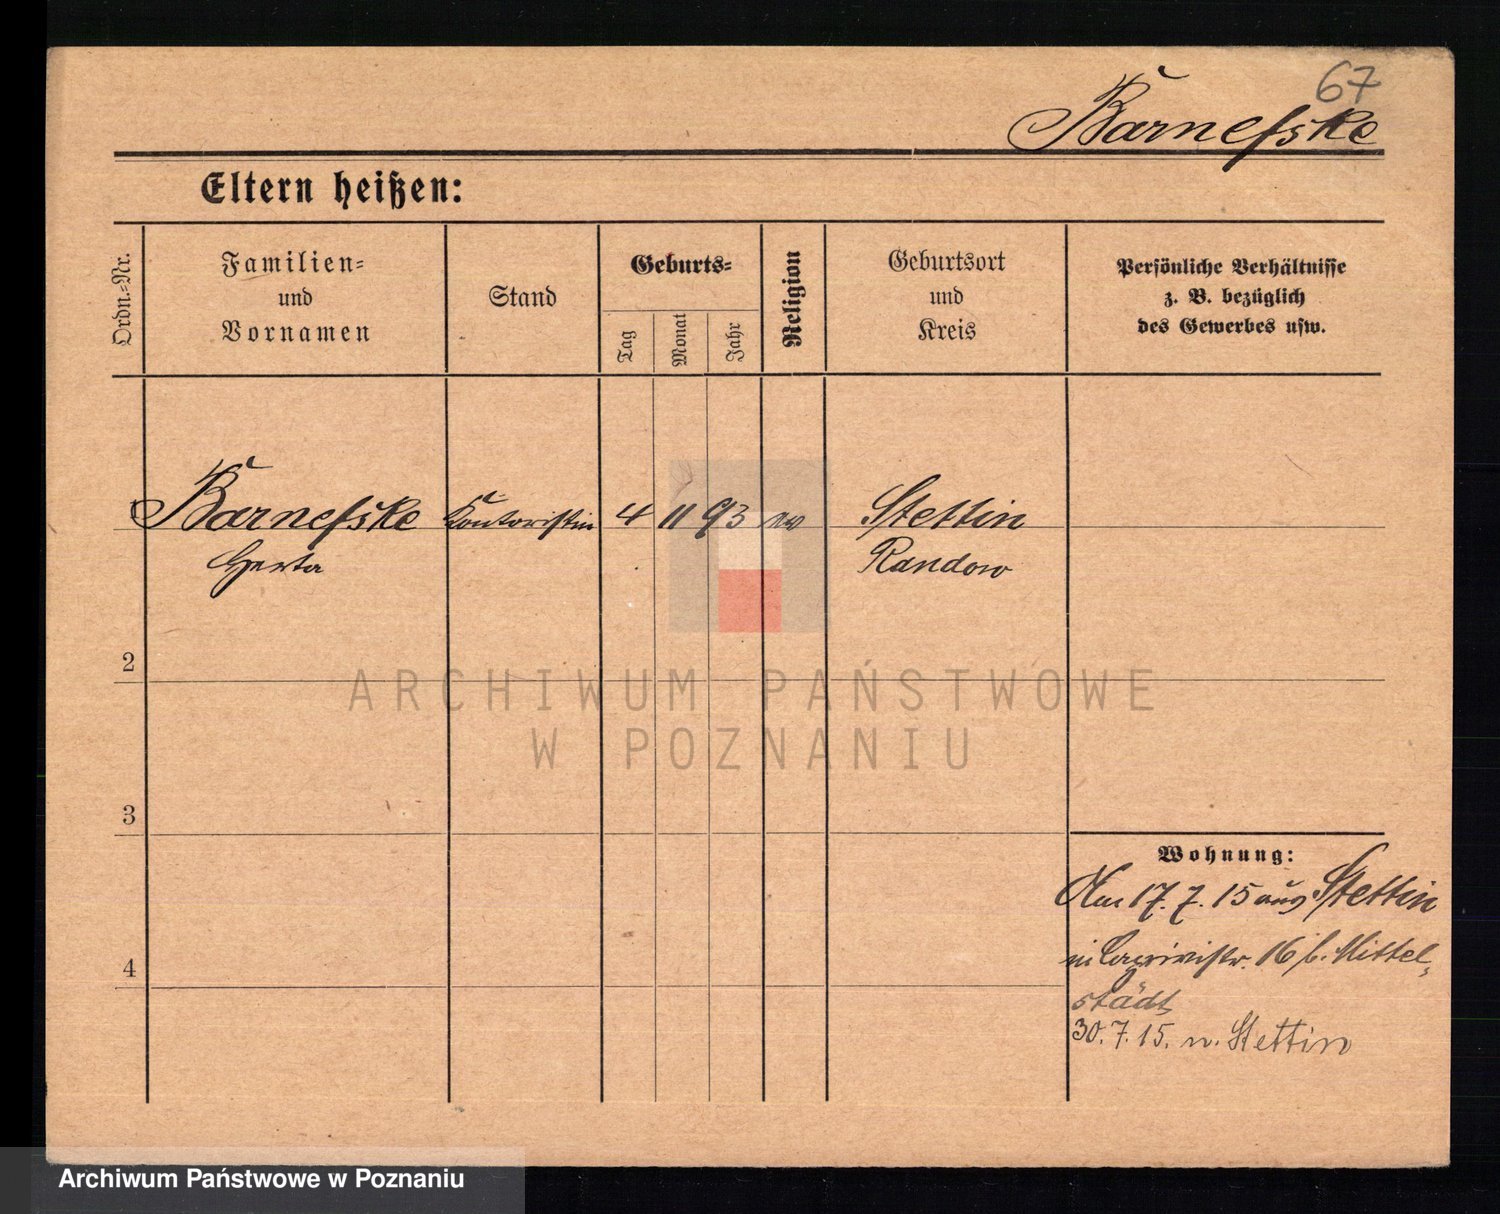 67
Barnefske
Eltern heißen:
Ordn.-Nr.
Familien-
und
Vornamen
Stand
Geburts-
Tag
Monat
Jahr
Religion
Geburtsort
und
Kreis
Persönliche Verhältnisse
z. B. bezüglich
des Gewerbes usw.
1 Barnefske Kontoristin 4 11 93 ev Stettin
Herta Randow
2
3
4
Wohnung:
Am 17. 7. 15 aus Stettin
in Caprivistr. 16 b. Mittel-
städt
30. 7. 15. n. Stettin
ARCHIWUM PAŃSTWOWE
W POZNANIU
Archiwum Państwowe w Poznaniu